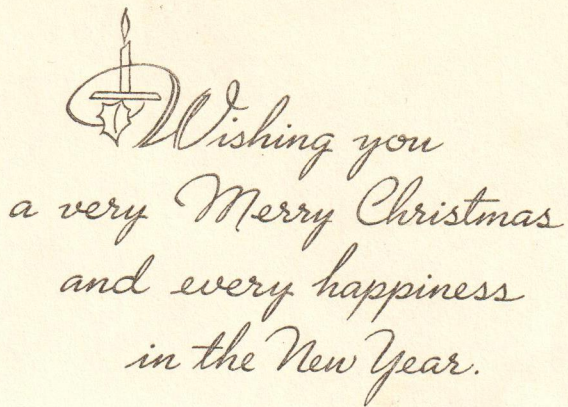 Wishing you
a very Merry Christmas
and every happiness
in the New Year.